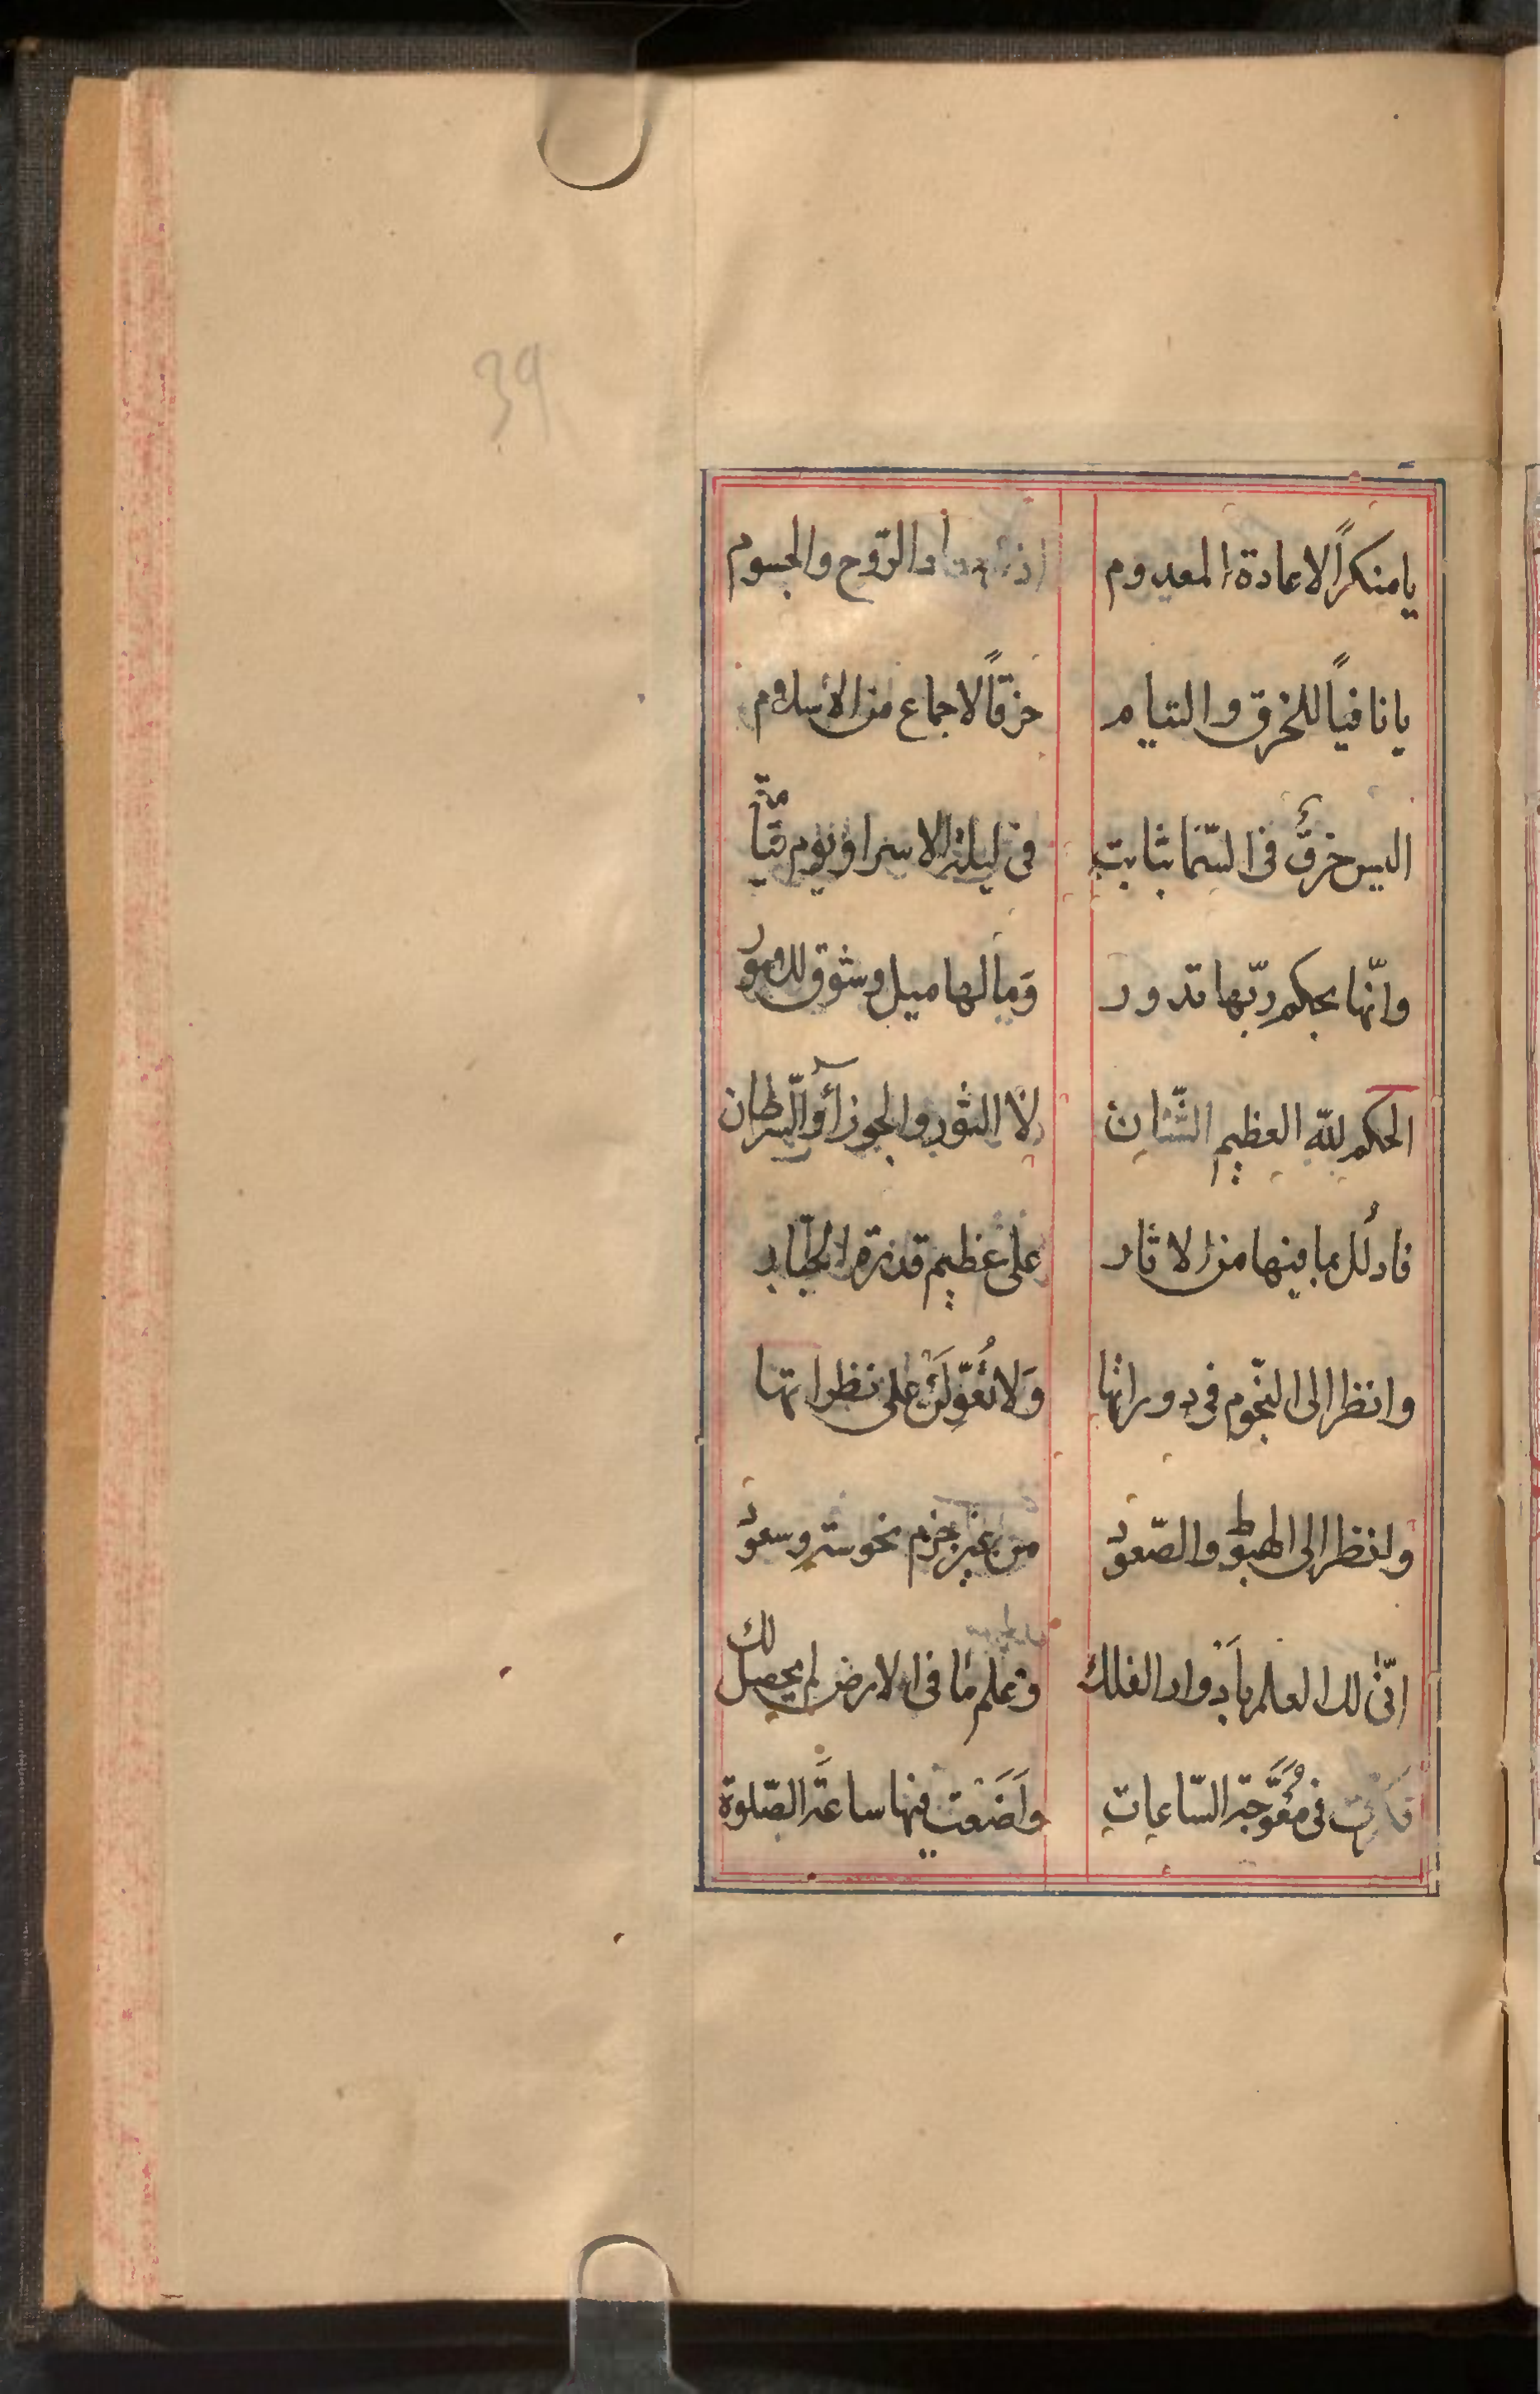 39
يا منكراً لاعادة المعدوم الرّوح والجسوم
يا نافياً للخرق والتيام خرقاً لاجماع من الاسلام
اليس خرقٌ فى السّما بثابت فى ليلة الاسرا ويوم
وانّها بحكم ربّها تدور وما لها ميل وشوق للامور
الحكم للّه العظيم الشّان لا الثور والجوزآء والسّرطان
فادلُل بما فيها من الاثار على عظيم قدرة الجبّار
وانظر الى النّجوم فى دورانها وَلا تُعَوِّلَنْ على نظراتها
وانظر الى الهبوط والصّعود من غير جزم نحوسة وسعود
انّى لك العلم بأَدوار الفلك وعلم ما فى الارض لم يحصل لك
فى مُعَوَّجَة السّاعاتِ وَضَعت فيها ساعَةَ الصّلوة